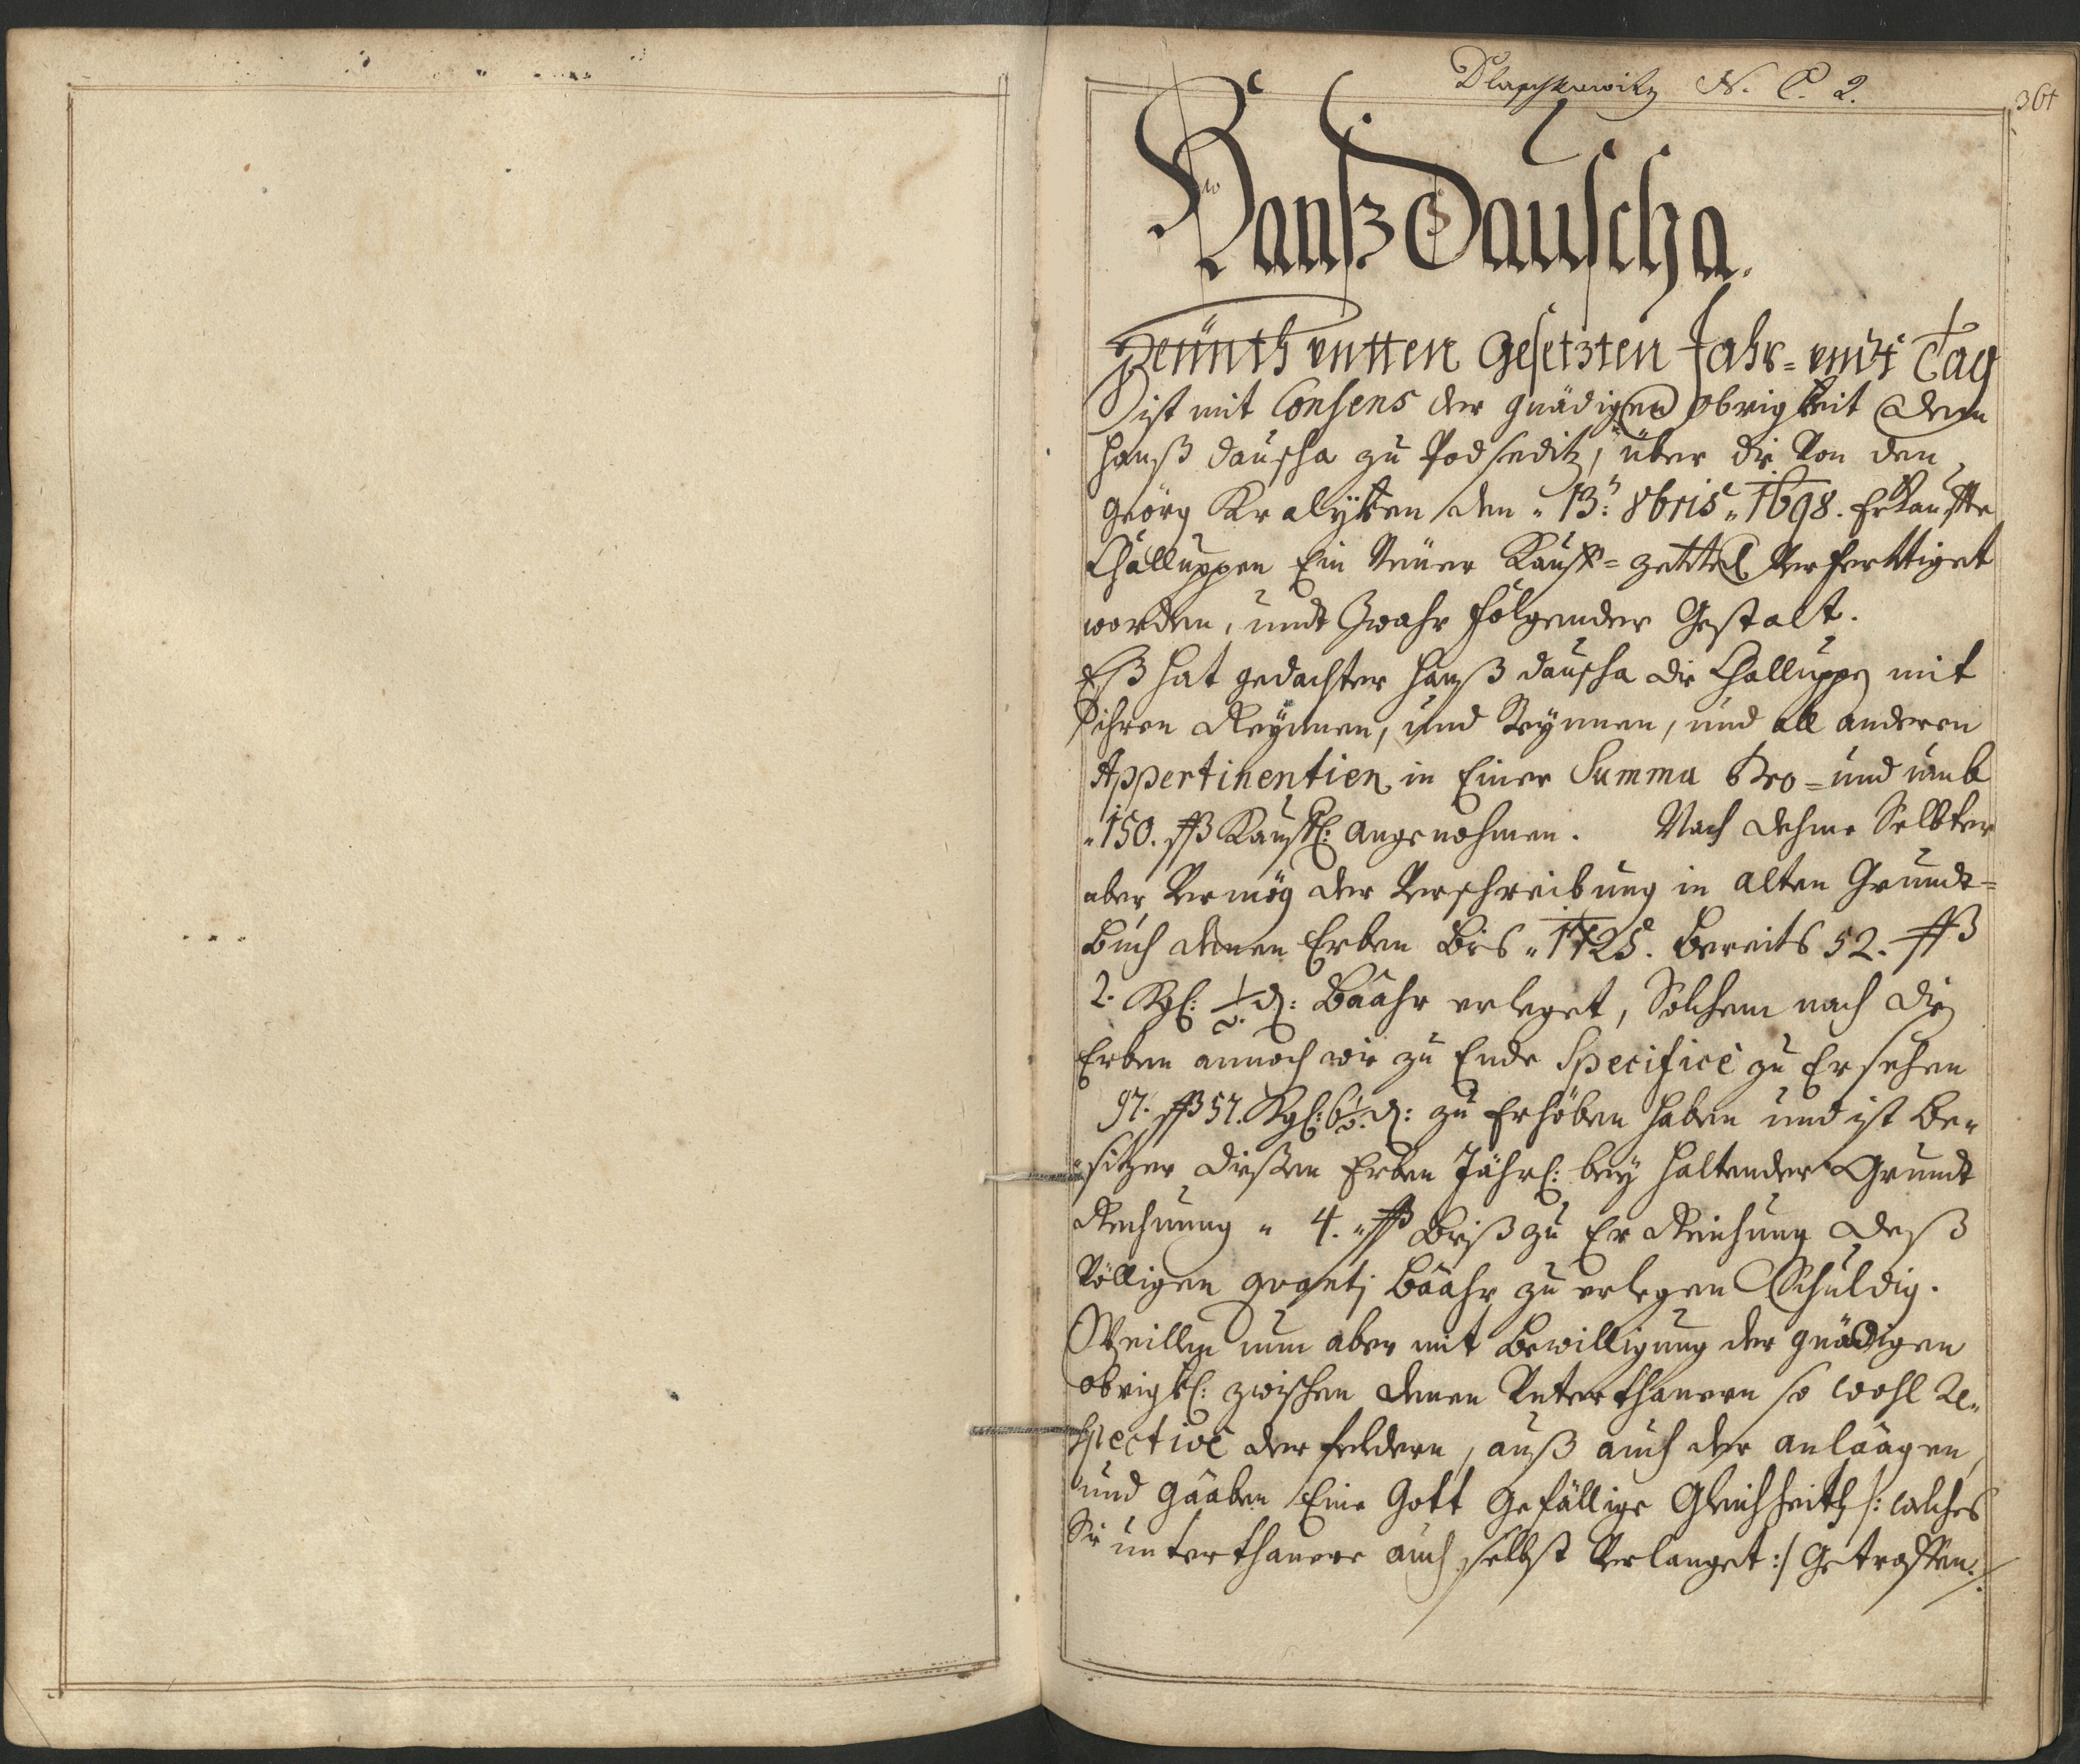 Dlaschkowitz N. C. 2.
361
Hanß Dauscha.
Heünth untten gesetzten Jahr- undt Tag
ist mit Consens der gnädigen obrigkeit dem
Hanß Dauscha zu Podseditz, über die Von den
Geörg Kralyken den 13. 8bris 1698. Erkauffte
Challuppen Ein Neüer Kauff-zettel Verferttiget
worden, undt Zwahr folgender Gestalt.
Eß hat gedachter Hanß Dauscha die Challuppen mit
ihren Reynen, und Steynnen, und all anderen
Appertinentien in Einer Summa Pro- und umb
150. ßß Kauffl: angenohmen. Nach dehme Selbter
aber Vermög der Verschreibung in alten Grundt-
Buch denen Erben Bis 1725. bereits 52. ßß
2. Kgl: ½ d: Baahr erleget, Solchem nach die
Erben annoch wie zu Ende Specificè zu Ersehen
97. ßß 57. Kgl: 6½ d: zu Erhöben haben und ist Be-
sitzer dießen Erben Jährl: bey haltender Grundt
Rechnung 4. ßß Biß zu Er Reichung deß
Völligen quanti baahr zu erlegen Schuldig.
Weillen nun aber mit Bewilligung der gnädigen
obrigkl: zwischen denen Unterthanern so wohl Re-
spectivè der feldern, alß auch der anlaagen,
und gaaben Eine Gott Gefällige Gleichheith /: welches
Sie unterthanere auch selbst Verlanget :/ Getroffen